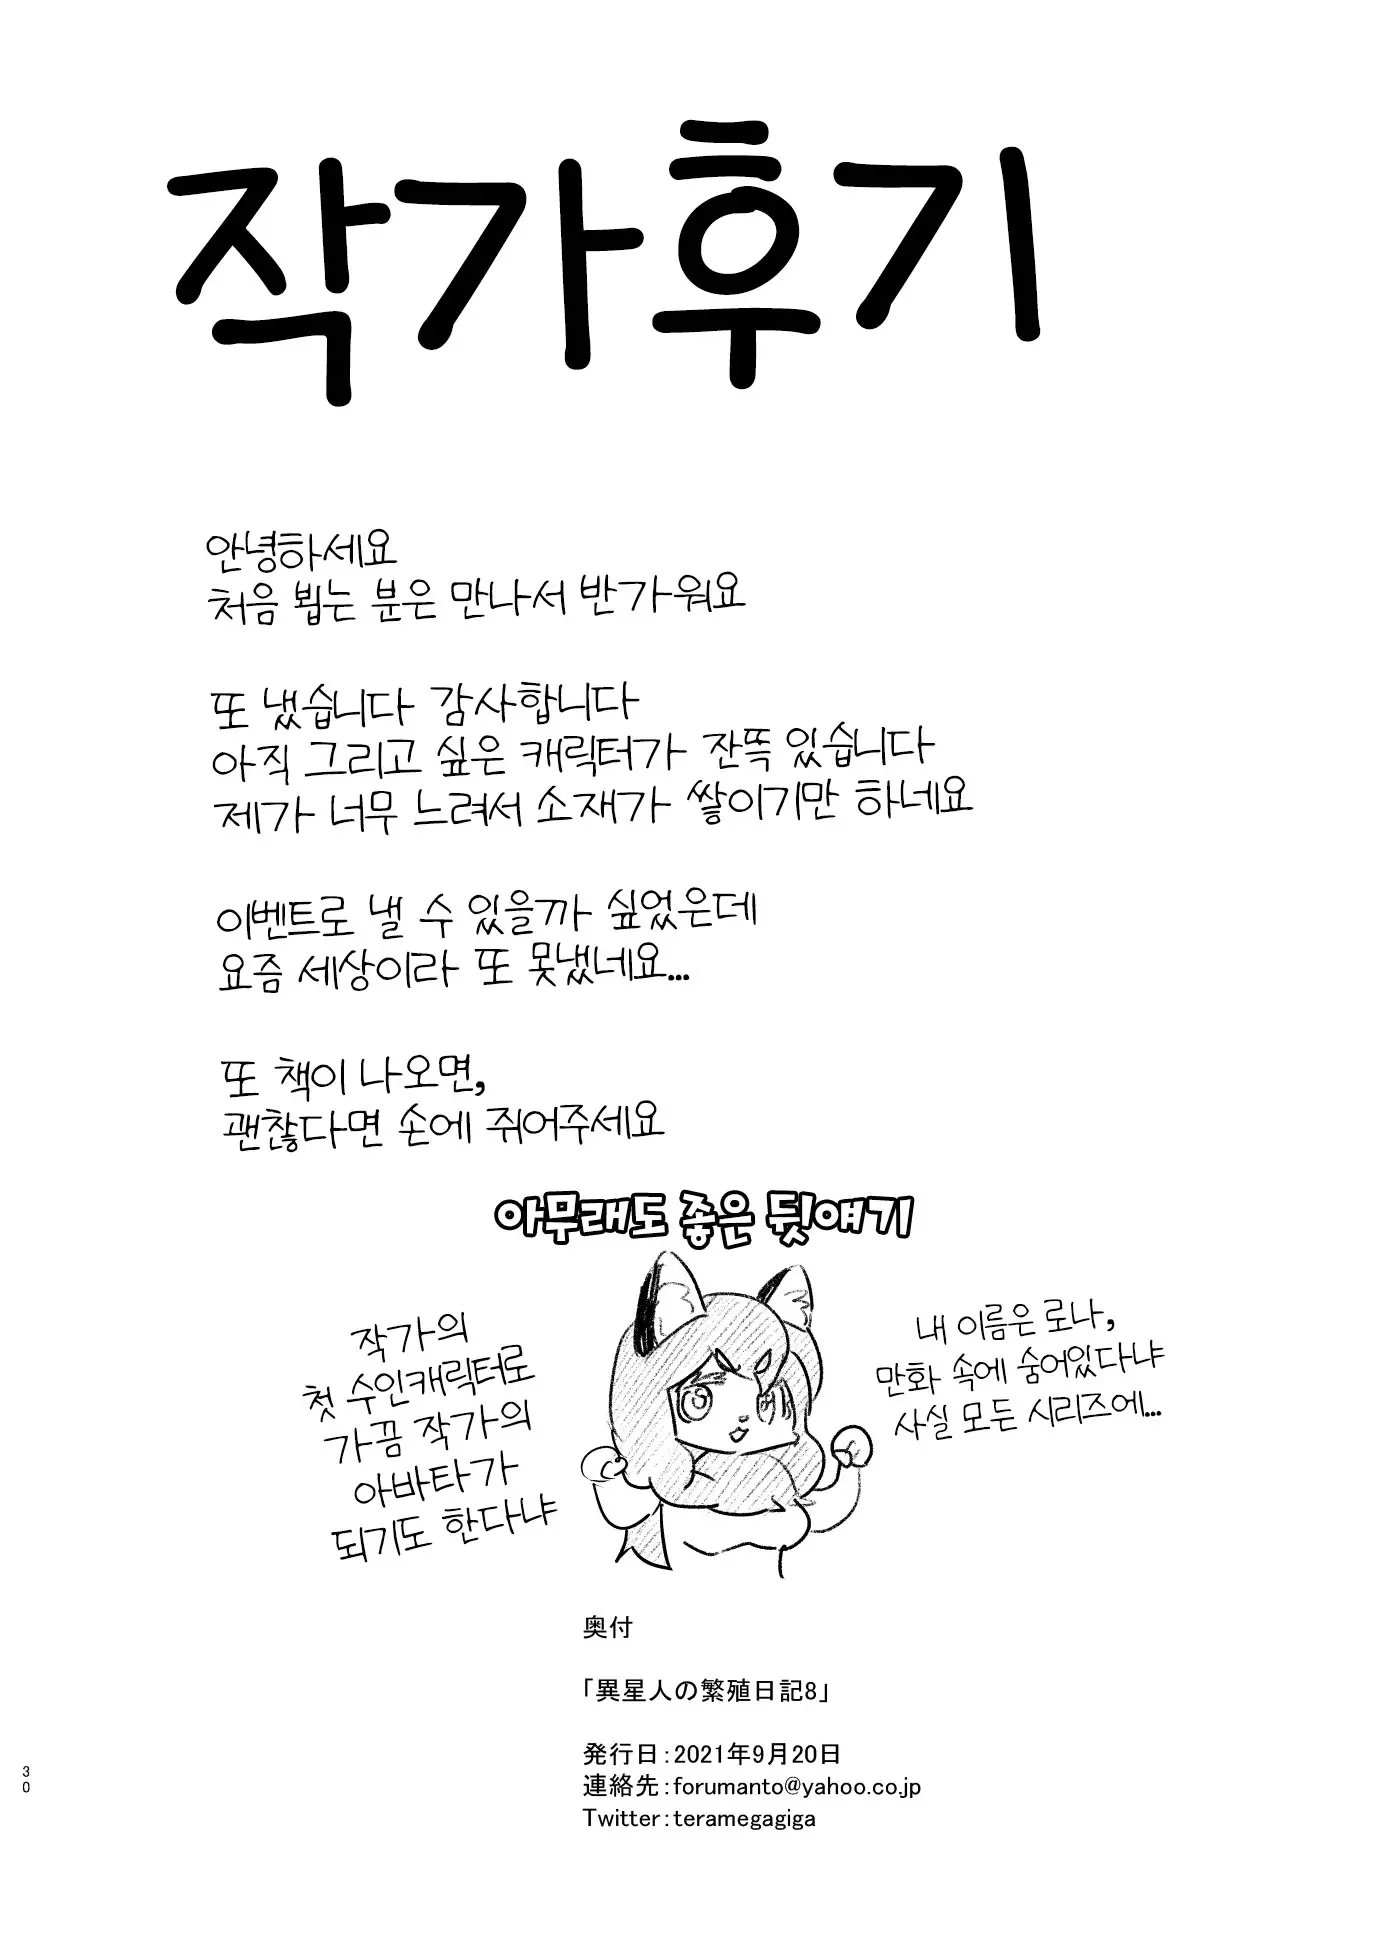 작가후기
안녕하세요
처음 뵙는 분은 만나서 반가워요
또 냈습니다 감사합니다
아직 그리고 싶은 캐릭터가 잔뜩 있습니다
제가 너무 느려서 소재가 쌓이기만 하네요
이벤트로 낼 수 있을까 싶었은데
요즘 세상이라 또 못냈네요...
또 책이 나오면,
괜찮다면 손에 쥐어주세요
아무래도 좋은 뒷얘기
작가의
첫 수인캐릭터로
가끔 작가의
아바타가
되기도 한다냐
내 이름은 로나,
만화 속에 숨어있다냐
사실 모든 시리즈에...
奥付
「異星人の繁殖日記8」
発行日:2021年9月20日
連絡先:forumanto@yahoo.co.jp
Twitter:teramegagiga
30